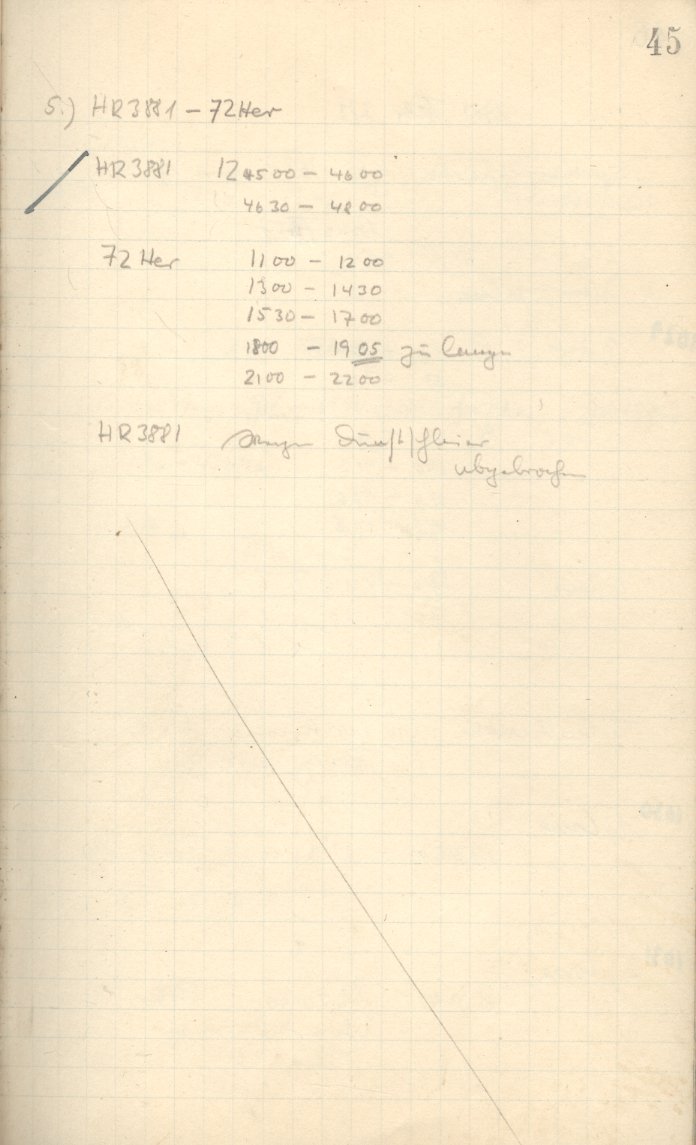 45
5.) HR3881 - 72Her
HR3881 12 4500 - 4600
4630 - 4800
72 Her 1100 - 1200
1300 - 1430
1530 - 1700
1800 - 1905 zu lange
2100 - 2200
HR3881 wegen Dunstschleier
abgebrochen